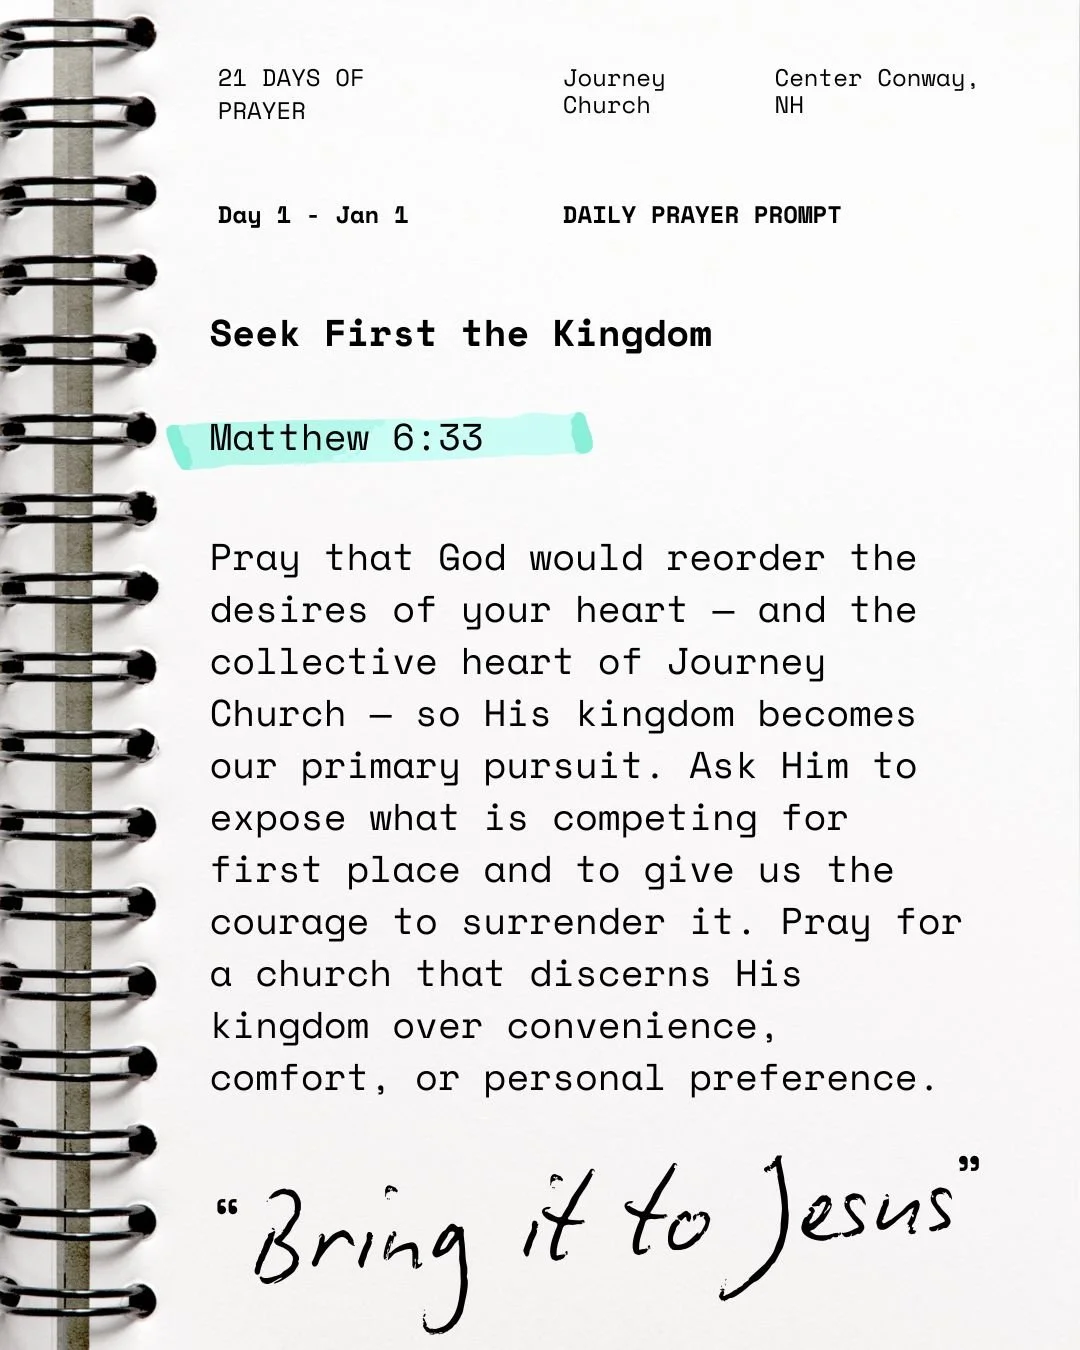 21 DAYS OF
PRAYER
Journey
Church
Center Conway,
NH
Day 1 - Jan 1
DAILY PRAYER PROMPT
Seek First the Kingdom
Matthew 6:33
Pray that God would reorder the
desires of your heart — and the
collective heart of Journey
Church — so His kingdom becomes
our primary pursuit. Ask Him to
expose what is competing for
first place and to give us the
courage to surrender it. Pray for
a church that discerns His
kingdom over convenience,
comfort, or personal preference.
“Bring it to Jesus”